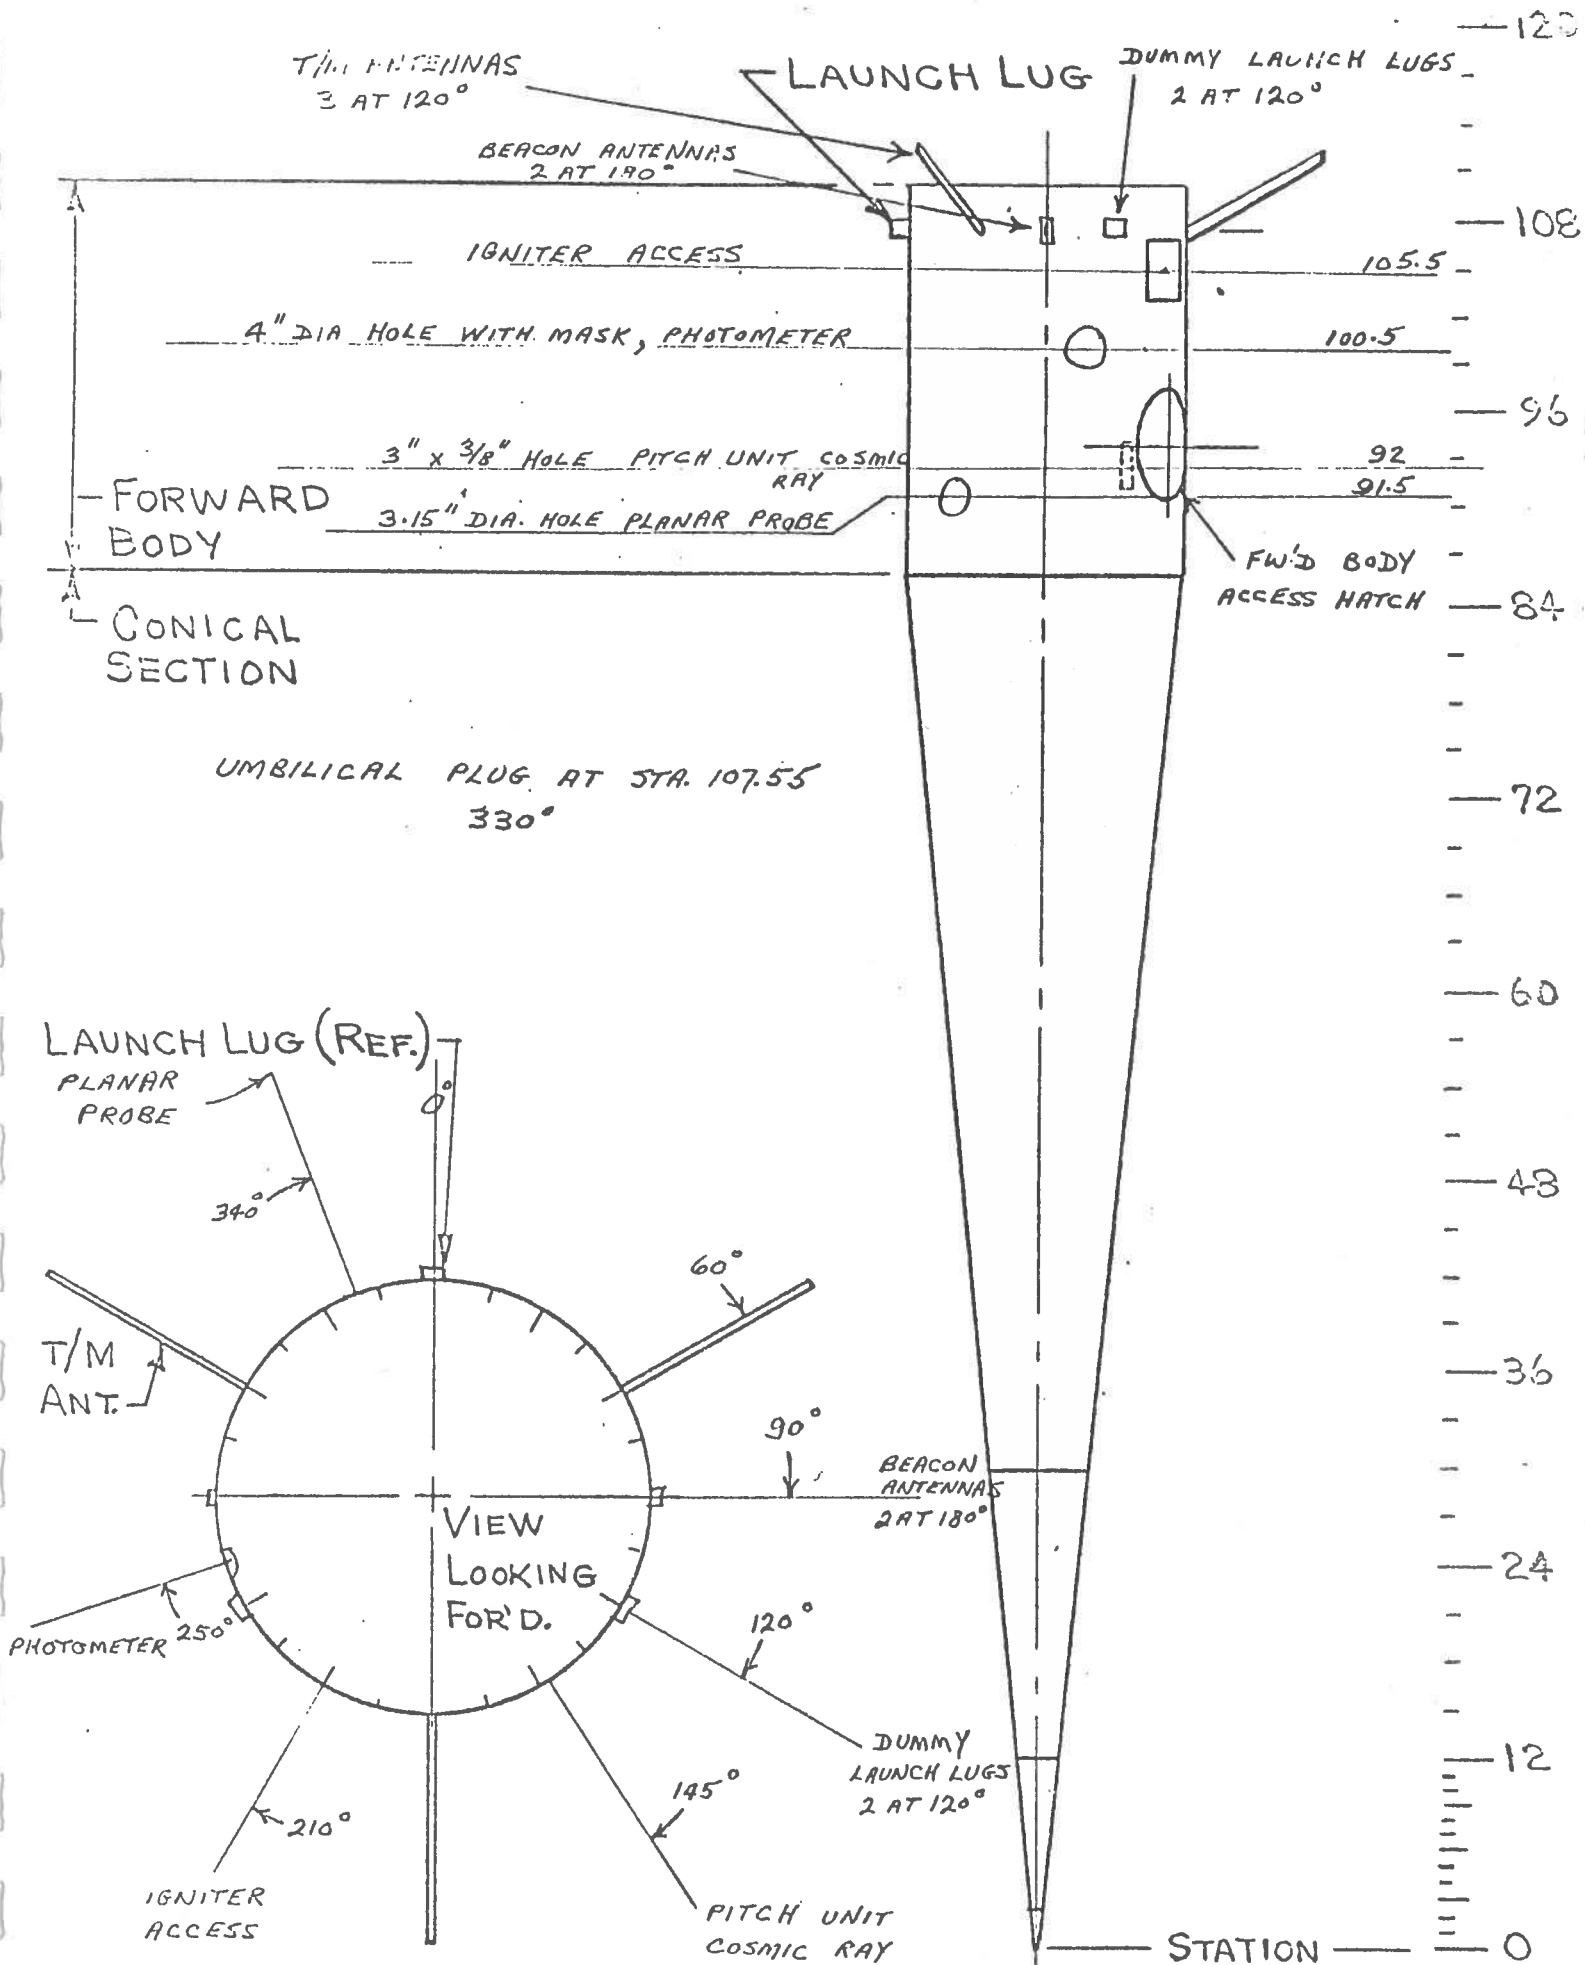 T/M ANTENNAS
3 AT 120°
LAUNCH LUG
DUMMY LAUNCH LUGS
2 AT 120°
BEACON ANTENNAS
2 AT 180°
IGNITER ACCESS
105.5
4" DIA HOLE WITH MASK, PHOTOMETER
100.5
3" x 3/8" HOLE PITCH UNIT COSMIC
RAY
92
91.5
3.15" DIA. HOLE PLANAR PROBE
FORWARD
BODY
FW'D BODY
ACCESS HATCH
CONICAL
SECTION
UMBILICAL PLUG AT STA. 107.55
330°
120
108
96
84
72
60
48
36
24
12
0
STATION
LAUNCH LUG (REF.)
0°
PLANAR
PROBE
340°
60°
T/M
ANT.
90°
BEACON
ANTENNAS
2 AT 180°
VIEW
LOOKING
FOR'D.
PHOTOMETER 250°
120°
DUMMY
LAUNCH LUGS
2 AT 120°
145°
210°
IGNITER
ACCESS
PITCH UNIT
COSMIC RAY